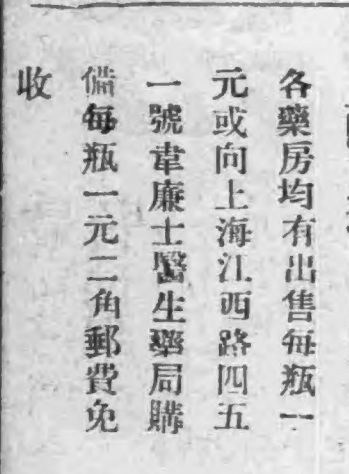 各藥房均有出售每瓶一
元或向上海江西路四五
一號韋廉士醫生藥局購
備每瓶一元二角郵費免
收